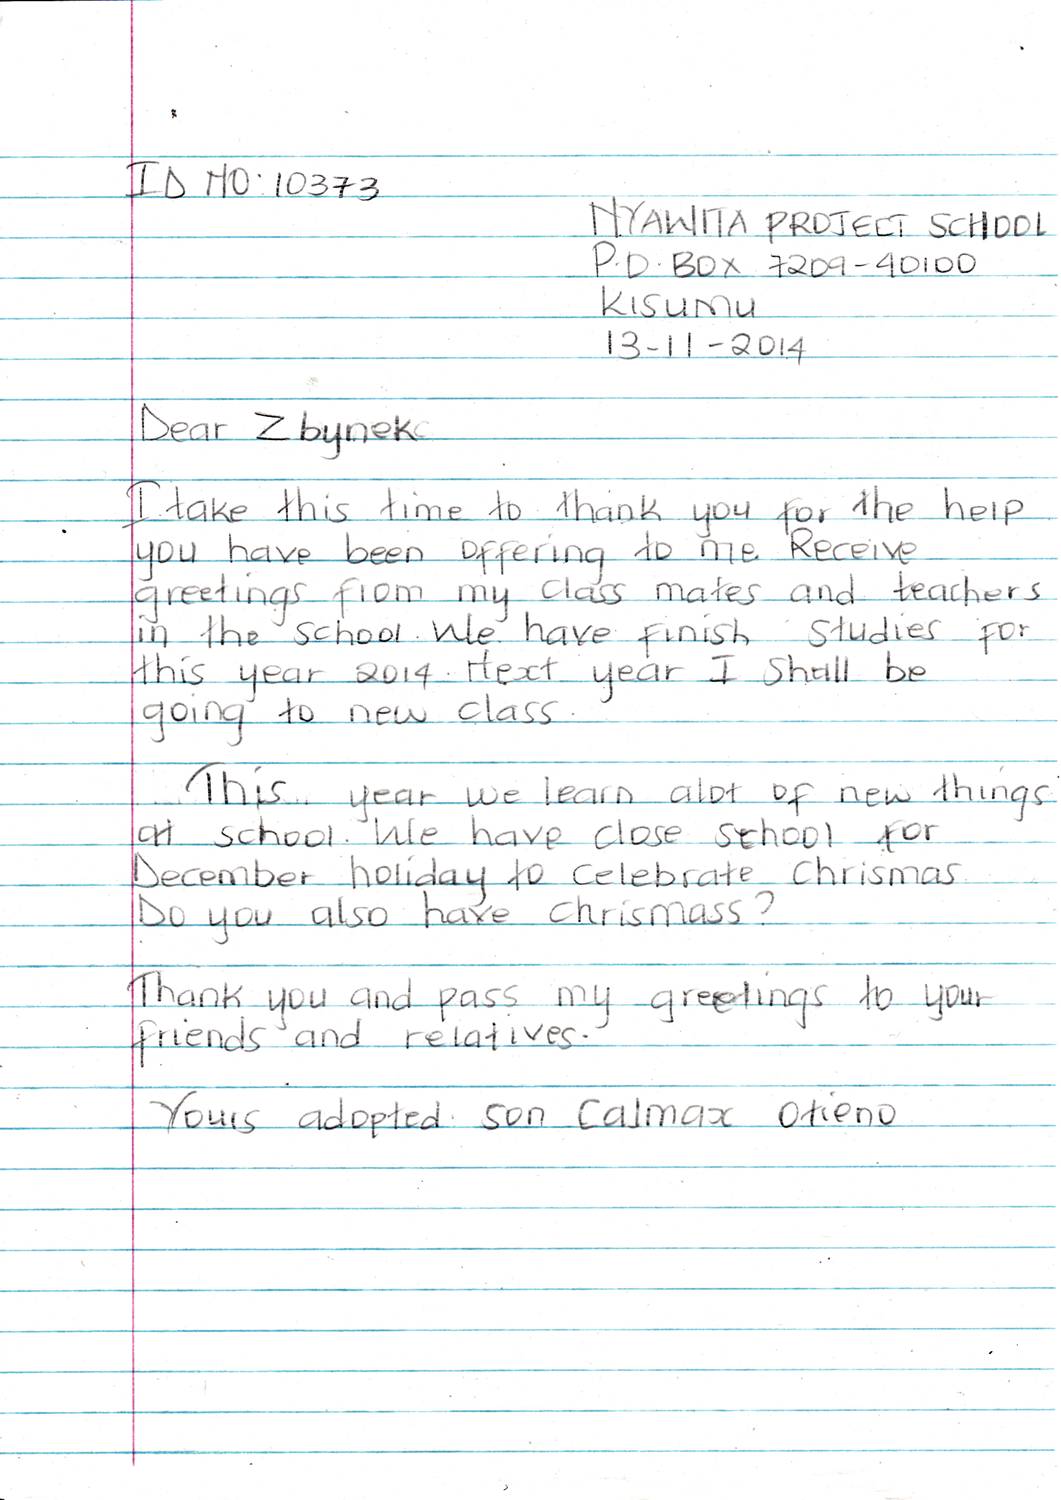 ID NO: 10373
NYAWITA PROJECT SCHOOL
P.O. BOX 7209-40100
KISUMU
13-11-2014
Dear Zbynek
I take this time to thank you for the help
you have been offering to me Receive
greetings from my class mates and teachers
in the school. We have finish studies for
this year 2014. Next year I shall be
going to new class.
This year we learn alot of new things
at school. We have close school for
December holiday to celebrate Chrismas
Do you also have chrismass?
Thank you and pass my greetings to your
friends and relatives.
Yours adopted son Calmax Otieno